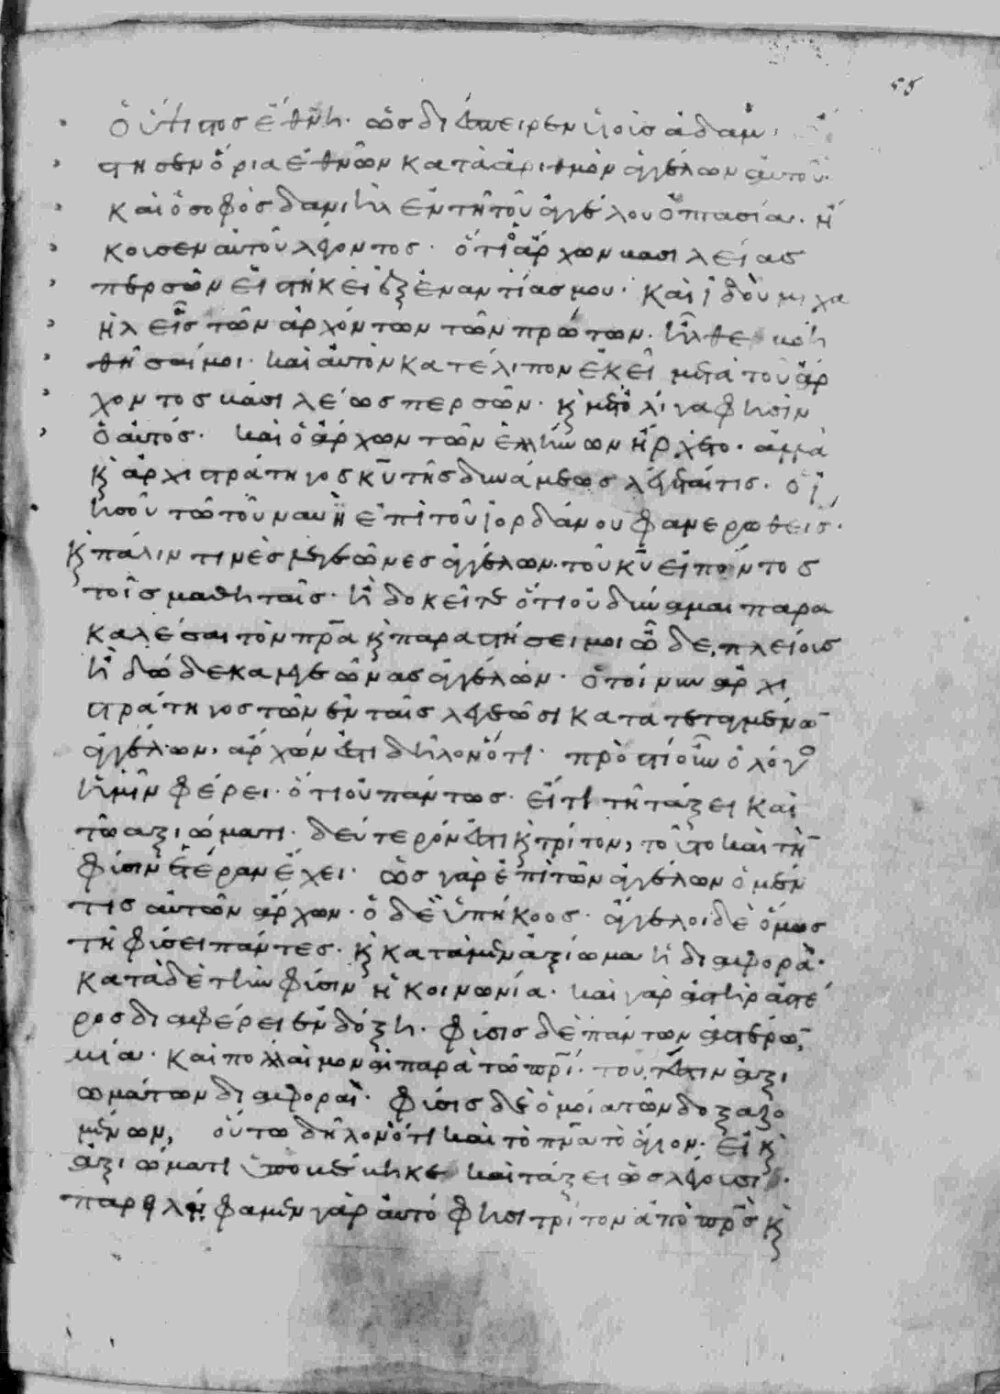 ὁ ὕψιστος ἔθνη. ὡς διέσπειρεν υἱοὺς ἀδάμ.
στησεν ὅρια ἐθνῶν κατὰ ἀριθμὸν ἀγγέλων αὐτοῦ.
καὶ ὁ σοφὸς δανιὴλ ἐν τῆ τοῦ ἀγγέλου ὀπτασία. ἤ
κουσεν αὐτοῦ λέγοντος. ὅτι ὁ ἄρχων βασιλείας
περσῶν εἱστήκει ἐξ ἐναντίας μου. καὶ ἰδοὺ μιχα
ὴλ εἷς τῶν ἀρχόντων τῶν πρώτων. ἦλθε βοη
θῆσαί μοι. καὶ αὐτὸν κατέλιπον ἐκεῖ μετὰ τοῦ ἄρ
χοντος βασιλέως περσῶν. κ μετ' ὀλίγα φησὶν
ὁ αὐτός. καὶ ὁ ἄρχων τῶν ἑλλήνων ἤρχετο. ἀλλὰ
κ ἀρχιστράτηγος κυ τῆς δυνάμεως λέγεταί τις. ὁ ἰ
ησοῦ τῶ τοῦ ναυῆ ἐπὶ τοῦ ἰορδάνου φανερωθείς.
κ πάλιν τινὲς λεγεῶνες ἀγγέλων. τοῦ κυ εἰπόντος
τοῖς μαθηταῖς. ἢ δοκεῖτε ὅτι οὐ δύναμαι παρα
καλέσαι τὸν πρα κ παραστήσει μοι ὧδε, πλείους
ἢ δώδεκα λεγεῶνας ἀγγέλων. ὁ τοίνυν ἀρχι
στράτηγος τῶν ἐν ταῖς λεγεῶσι κατατεταγμένω
ἀγγέλων, ἄρχων ἐστὶ δηλονότι. πρὸς τί οὖν ὁ λόγος
ἡμῖν φέρει. ὅτι οὐ πάντως. εἴ τι τῆ τάξει καὶ
τῶ ἀξιώματι. δεύτερόν ἐστι κ τρίτον, τοῦτο καὶ τὴ
φύσιν ἑτέραν ἔχει. ὡς γὰρ ἐπὶ τῶν ἀγγέλων ὁ μέν
τις αὐτῶν ἄρχων. ὁ δὲ ὑπήκοος. ἄγγελοι δὲ ὅμως
τῆ φύσει πάντες. κ κατὰ μὲν ἀξίωμα ἡ διαφορά.
κατὰ δὲ τὴν φύσιν ἡ κοινωνία. καὶ γὰρ ἀστὴρ ἀστέ
ρος διαφέρει ἐν δόξη. φύσις δὲ πάντων ἀστέρω
μία. καὶ πολλαὶ μοναὶ παρὰ τῶ πρί. τουτέστιν ἀξι
ωμάτων διαφοραί. φύσις δὲ ὁμοία τῶν δοξαζο
μένων, οὕτω δηλονότι καὶ τὸ πνα τὸ ἅγιον. εἰ κ
ἀξιώματι ὑποβέβηκε καὶ τάξει ὡς λέγουσι.
παρειλήφαμεν γὰρ αὐτό φησι τρίτον ἀπὸ πρς κ